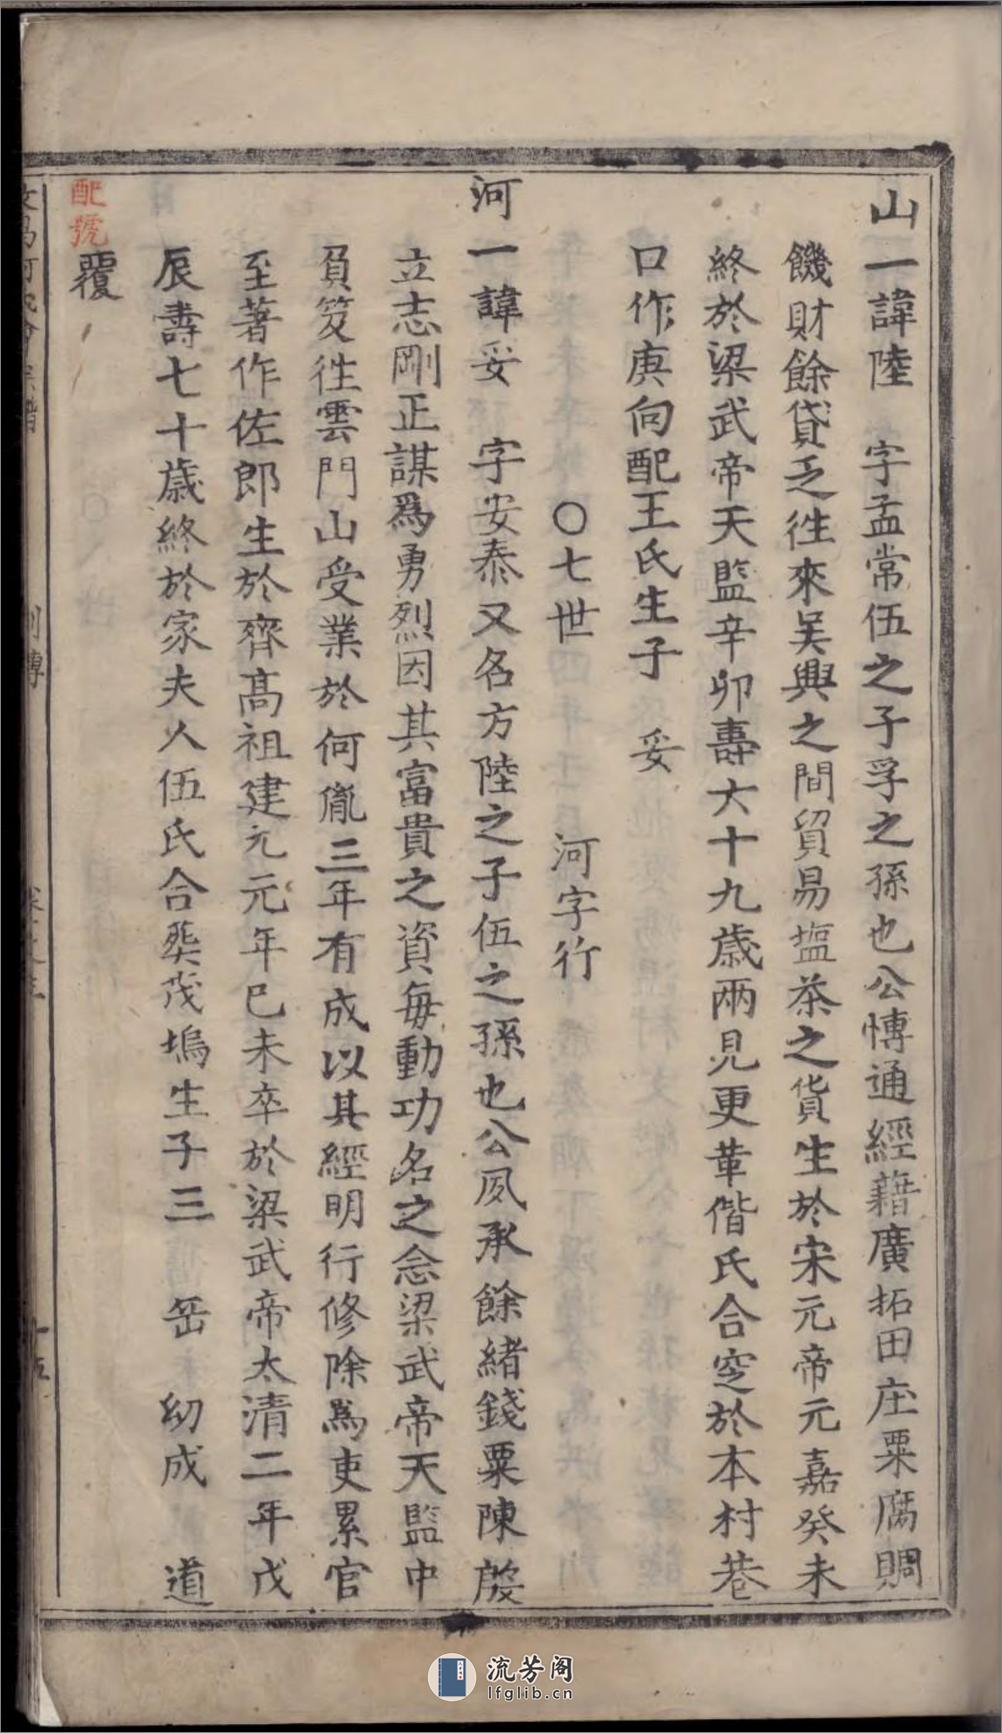 山一諱陸 字孟常伍之子孚之孫也公愽通經藉廣拓田庄粟腐賙
饑財餘貸乏徃來吴興之間貿易塩茶之貨生於宋元帝元嘉癸未
終於梁武帝天監辛卯壽六十九歲兩見更革偕氏合空於本村巷
口作庚向配王氏生子 妥
〇七世 河字行
河一諱妥 字安泰又名方陸之子伍之孫也公夙承餘緒錢粟陳殷
立志剛正謀爲勇烈因其富貴之資每動功名之念梁武帝天監中
負笈徃雲門山受業於何胤三年有成以其經明行修除爲吏累官
至著作佐郎生於齊高祖建元元年已未卒於梁武帝太清二年戊
辰壽七十歲終於家夫人伍氏合葬茂塢生子三 岳 幼成 道
配號
覆
列傳
十五
流芳阁
lfglib.cn